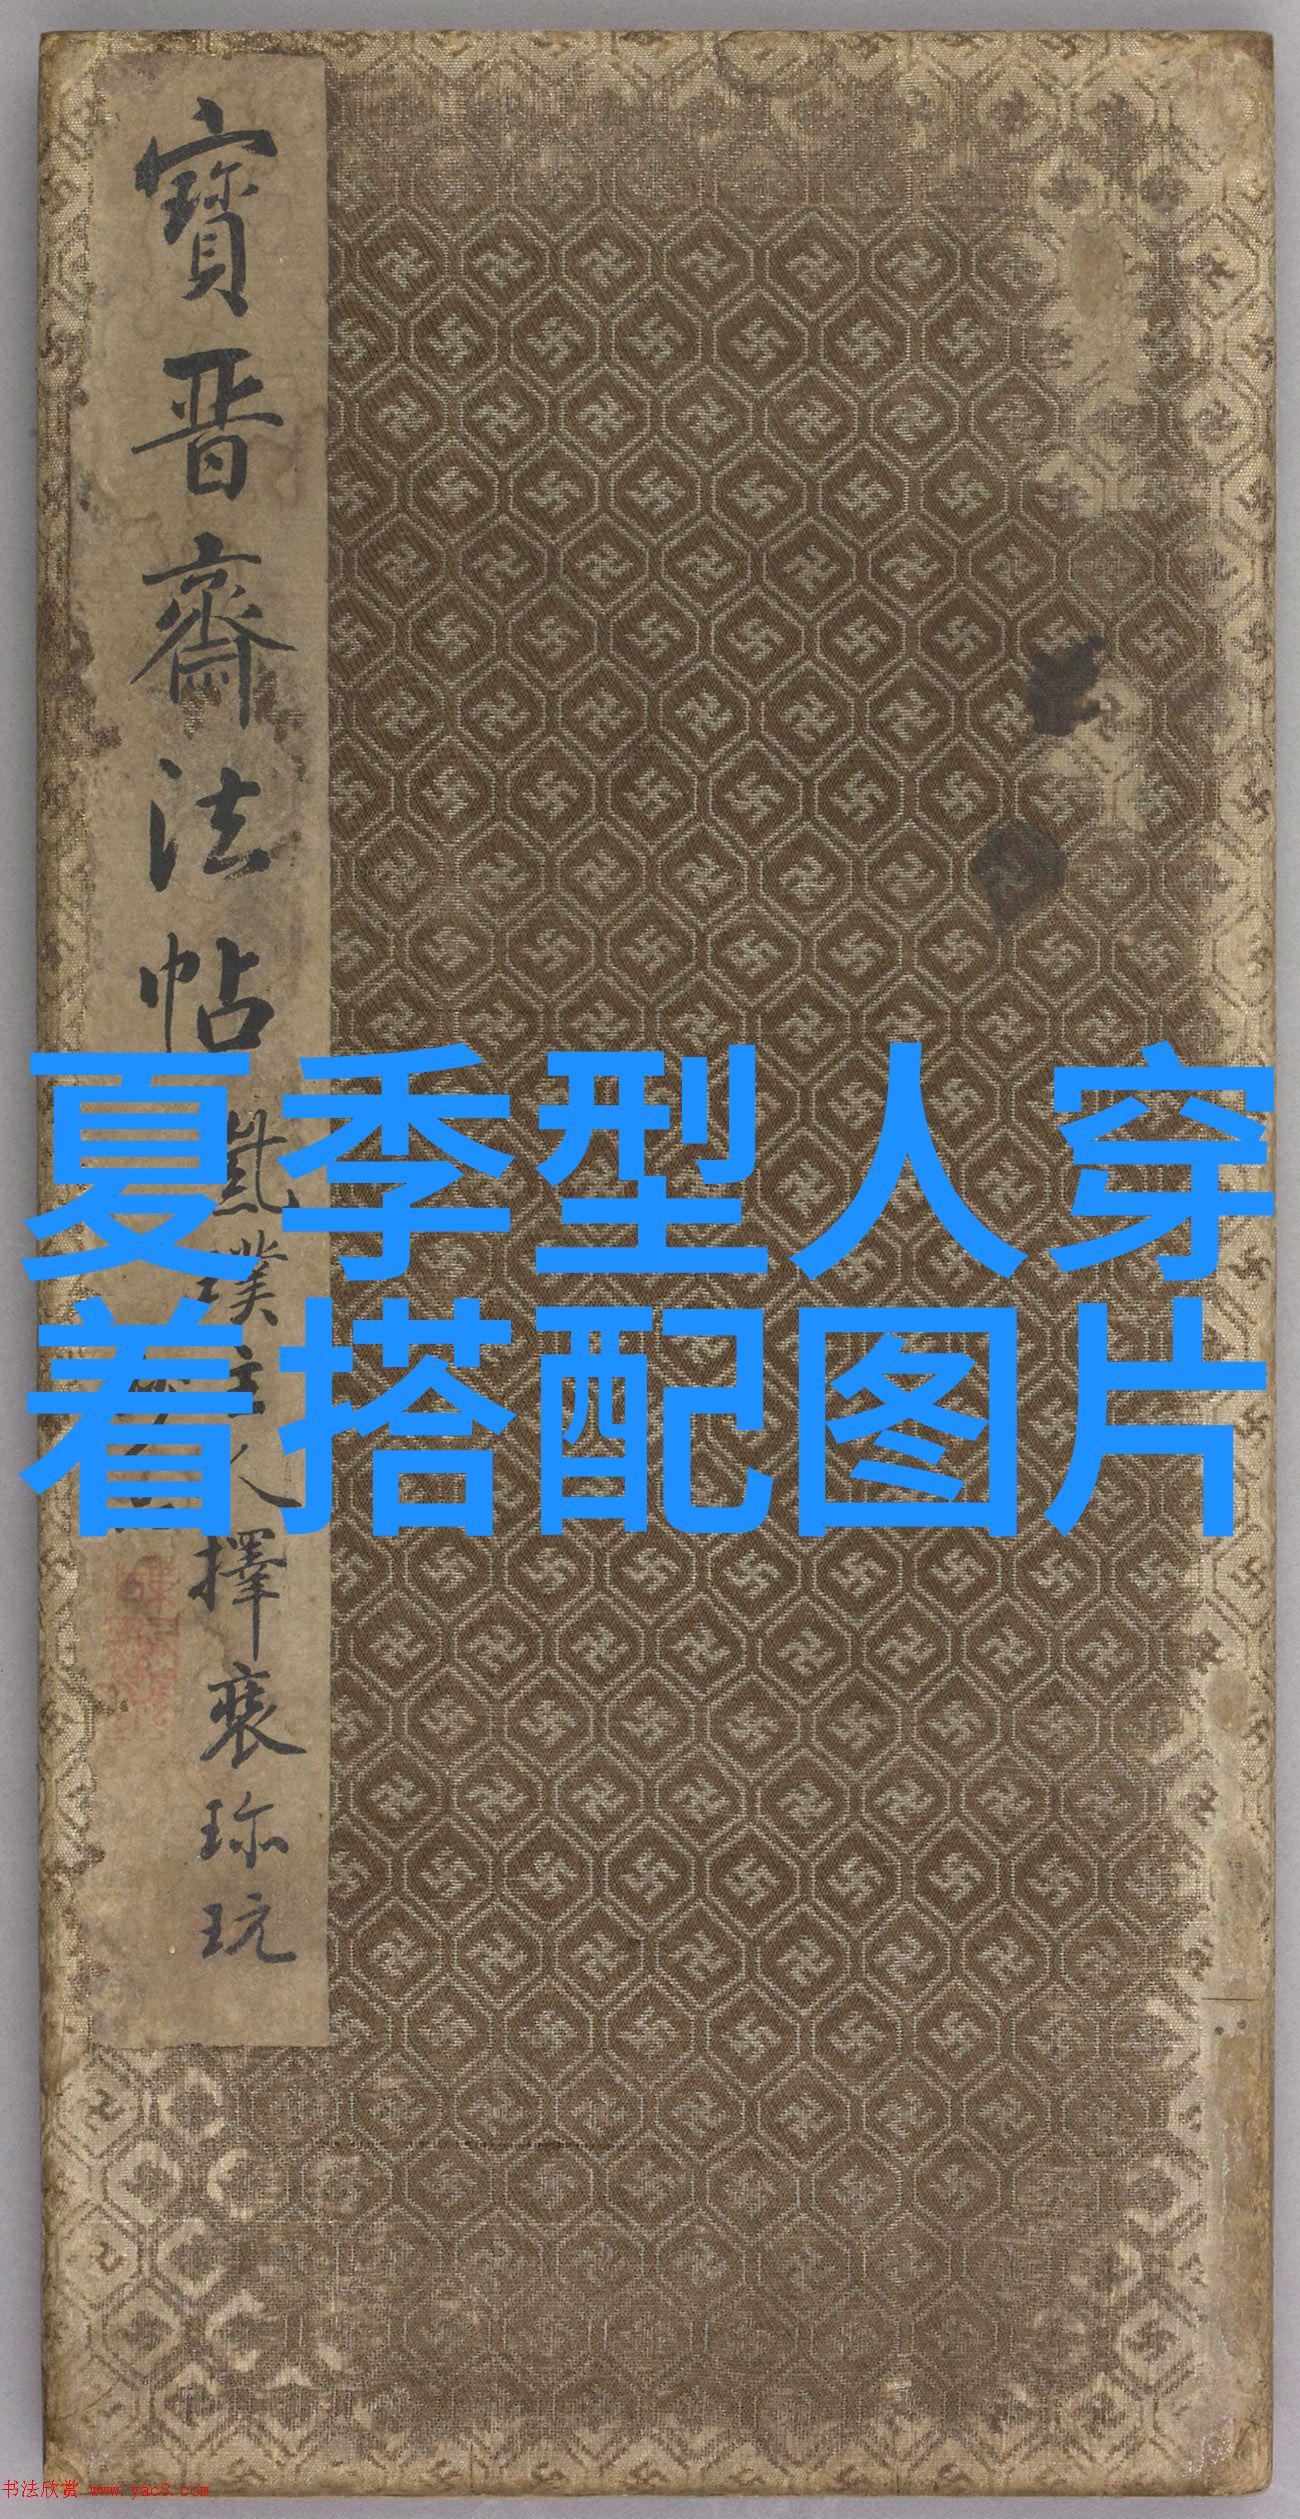 寶晋齋法帖
璞主人擇裘珎玩
夏季型人穿
着搭配图片
书法欣赏 www.yac8.com